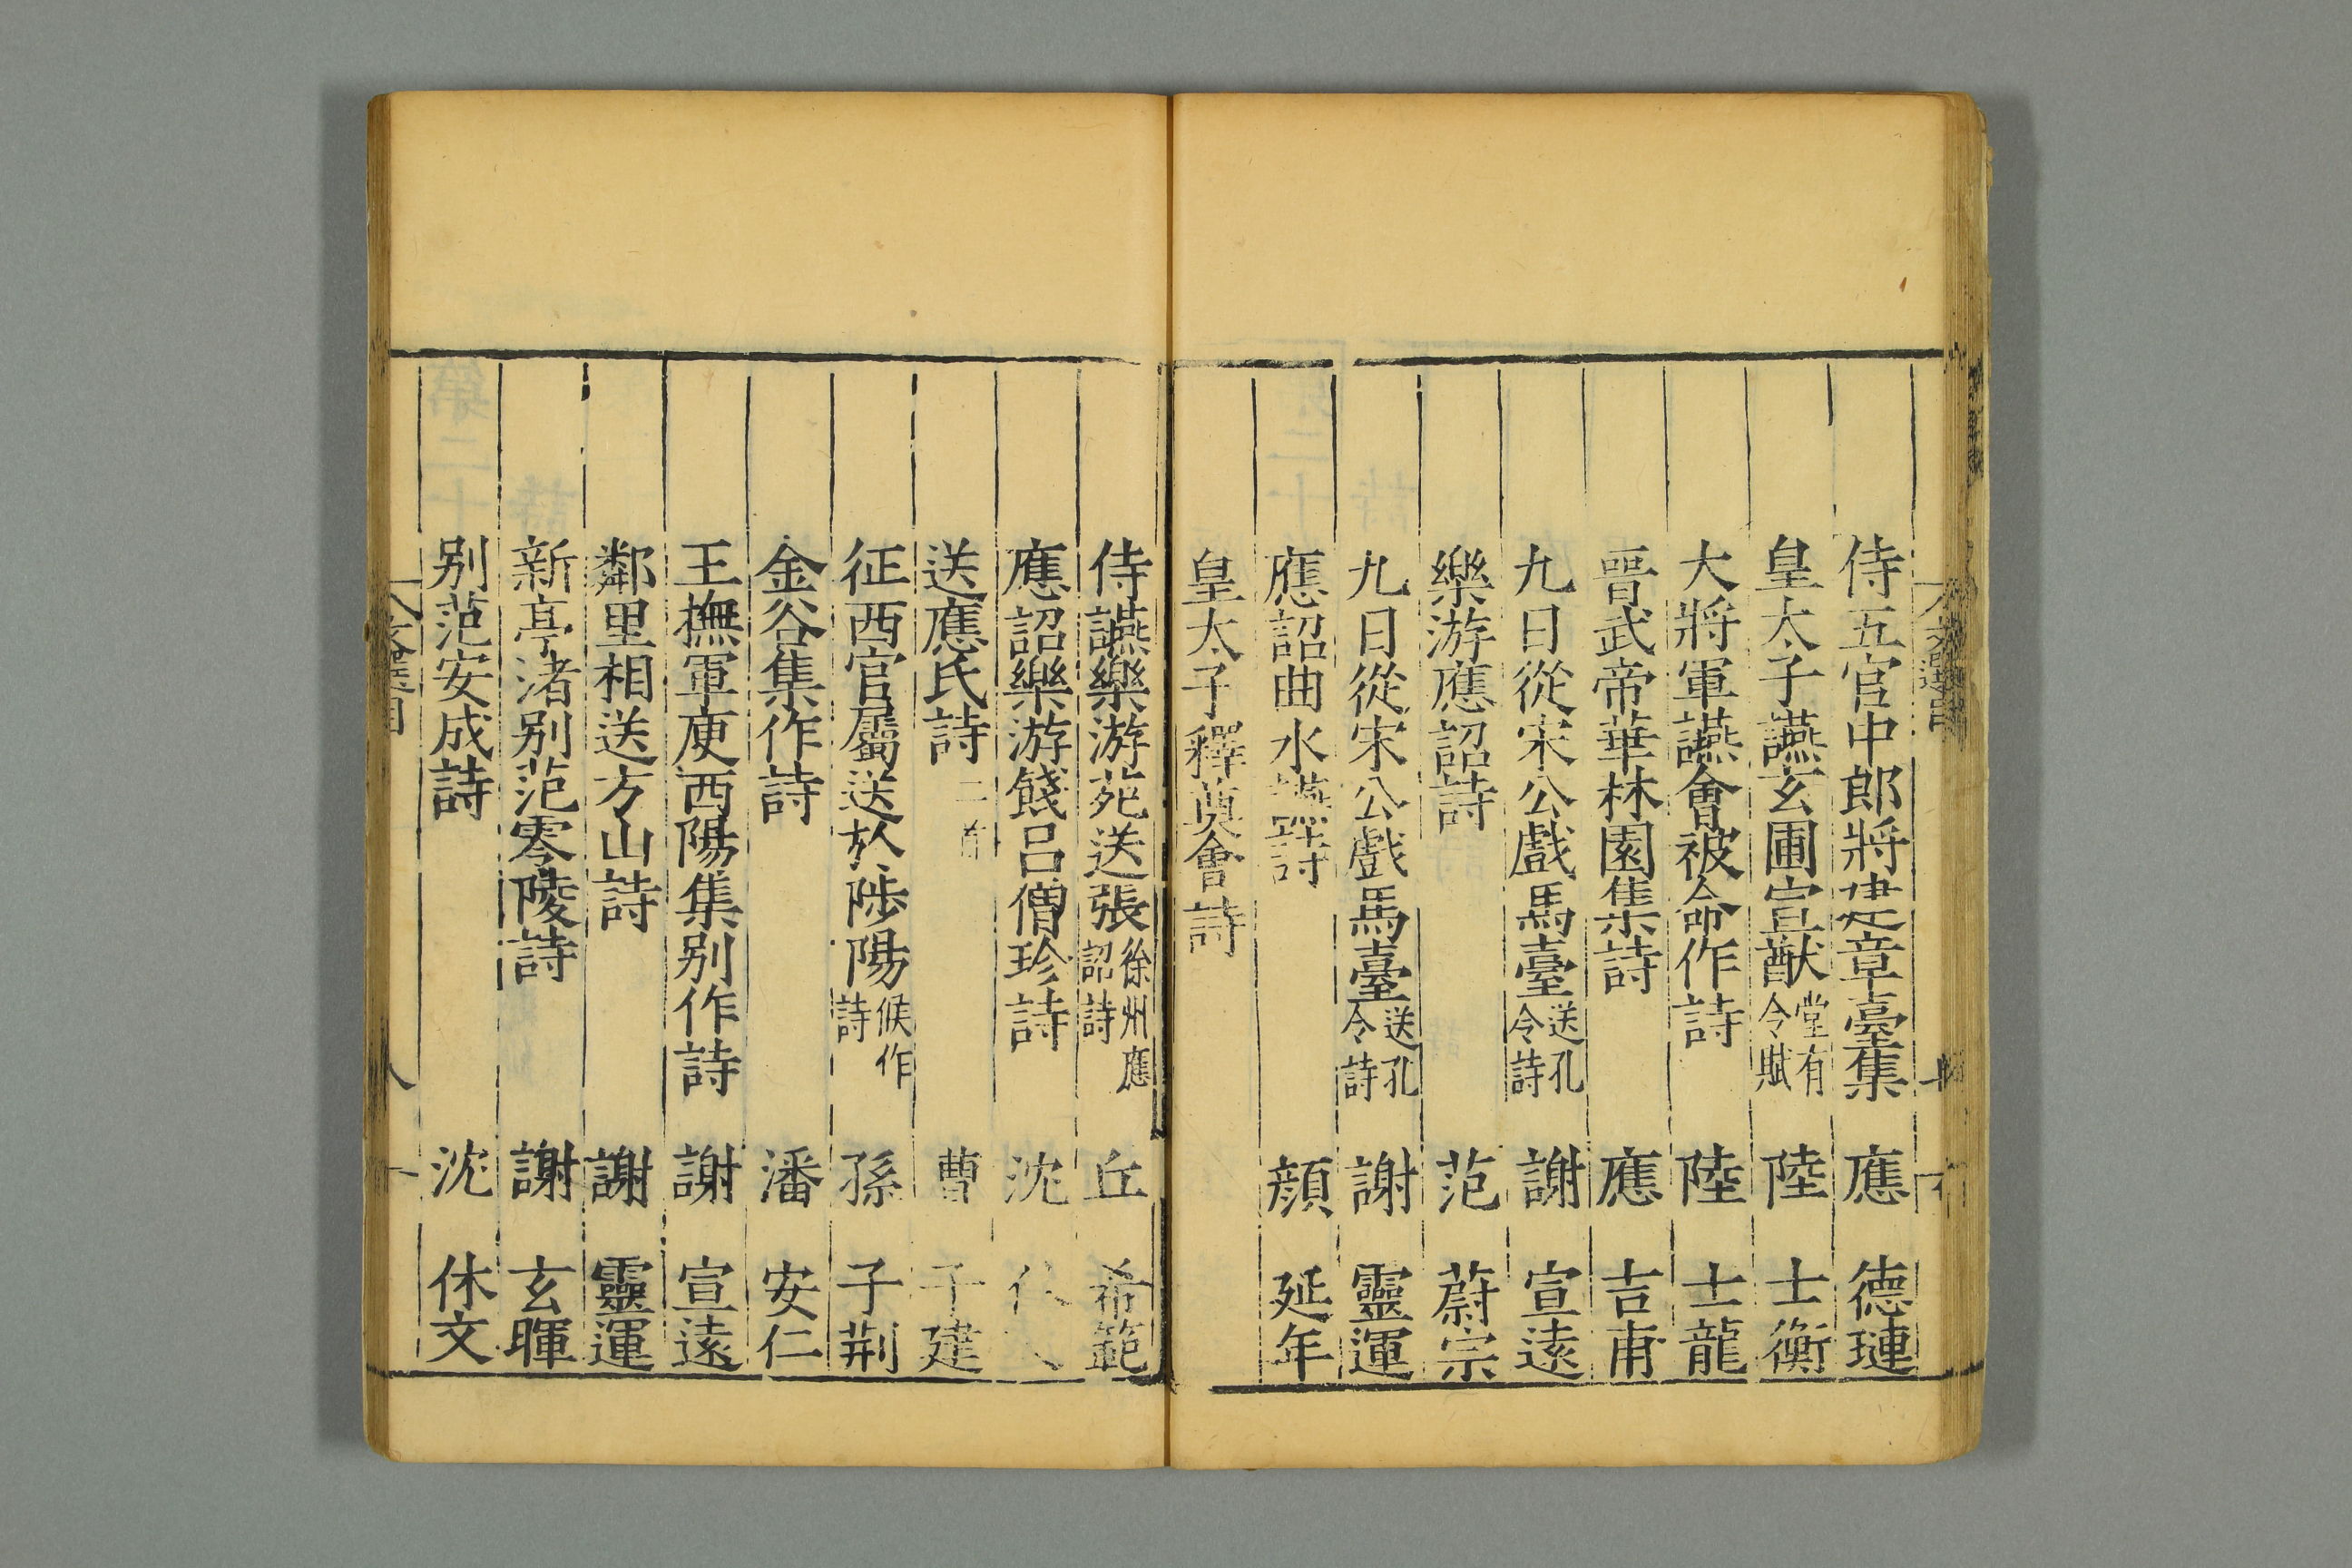 侍五官中郎將建章臺集 應 德璉
皇太子讌玄圃宣猷堂有令賦 陸 士衡
大將軍讌會被命作詩 陸 士龍
晉武帝華林園集詩 應 吉甫
九日從宋公戲馬臺送孔令詩 謝 宣遠
樂游應詔詩 范 蔚宗
九日從宋公戲馬臺送孔令詩 謝 靈運
應詔曲水讌詩 顔 延年
皇太子釋奠會詩
侍讌樂游苑送張徐州應詔詩 丘 希範
應詔樂游餞呂僧珍詩 沈 休文
送應氏詩二首 曹 子建
征西官屬送於陟陽候作詩 孫 子荆
金谷集作詩 潘 安仁
王撫軍庾西陽集别作詩 謝 宣遠
鄰里相送方山詩 謝 靈運
新亭渚别范零陵詩 謝 玄暉
别范安成詩 沈 休文
文選目